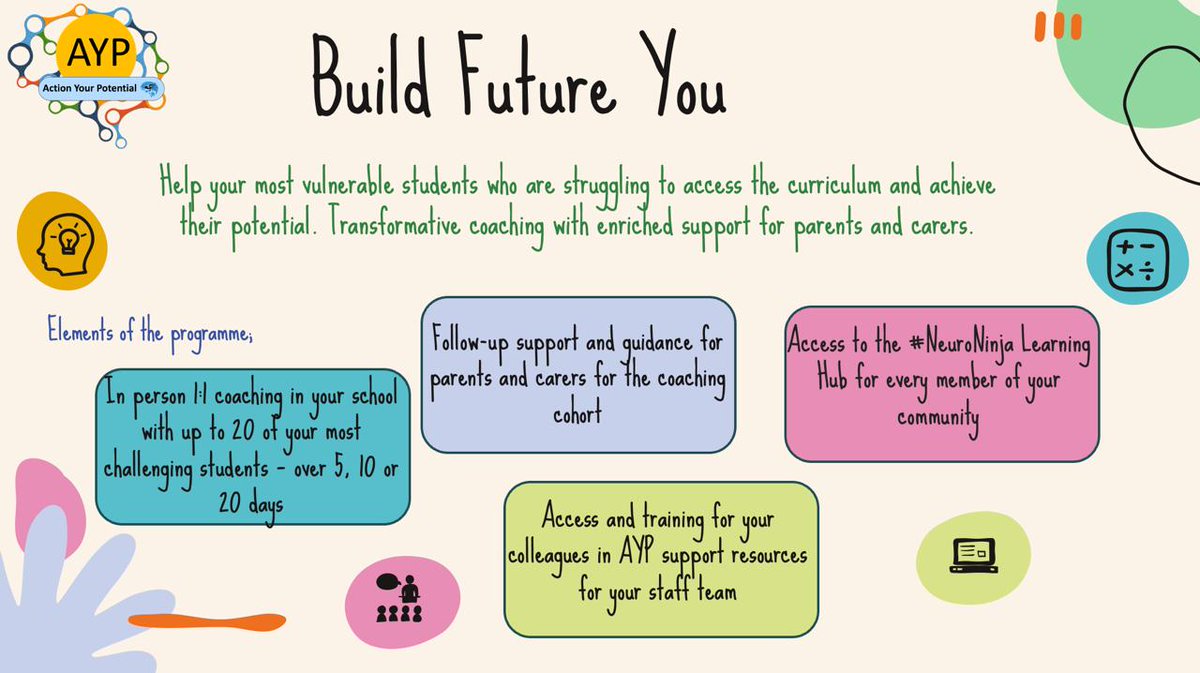 AYP
Action Your Potential
Build Future You
Help your most vulnerable students who are struggling to access the curriculum and achieve
their potential. Transformative coaching with enriched support for parents and carers.
Elements of the programme;
In person 1:1 coaching in your school
with up to 20 of your most
challenging students - over 5, 10 or
20 days
Follow-up support and guidance for
parents and carers for the coaching
cohort
Access to the #NeuroNinja Learning
Hub for every member of your
community
Access and training for your
colleagues in AYP support resources
for your staff team